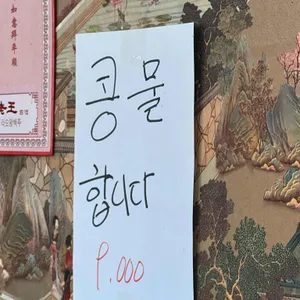 콩물
합니다
9.000